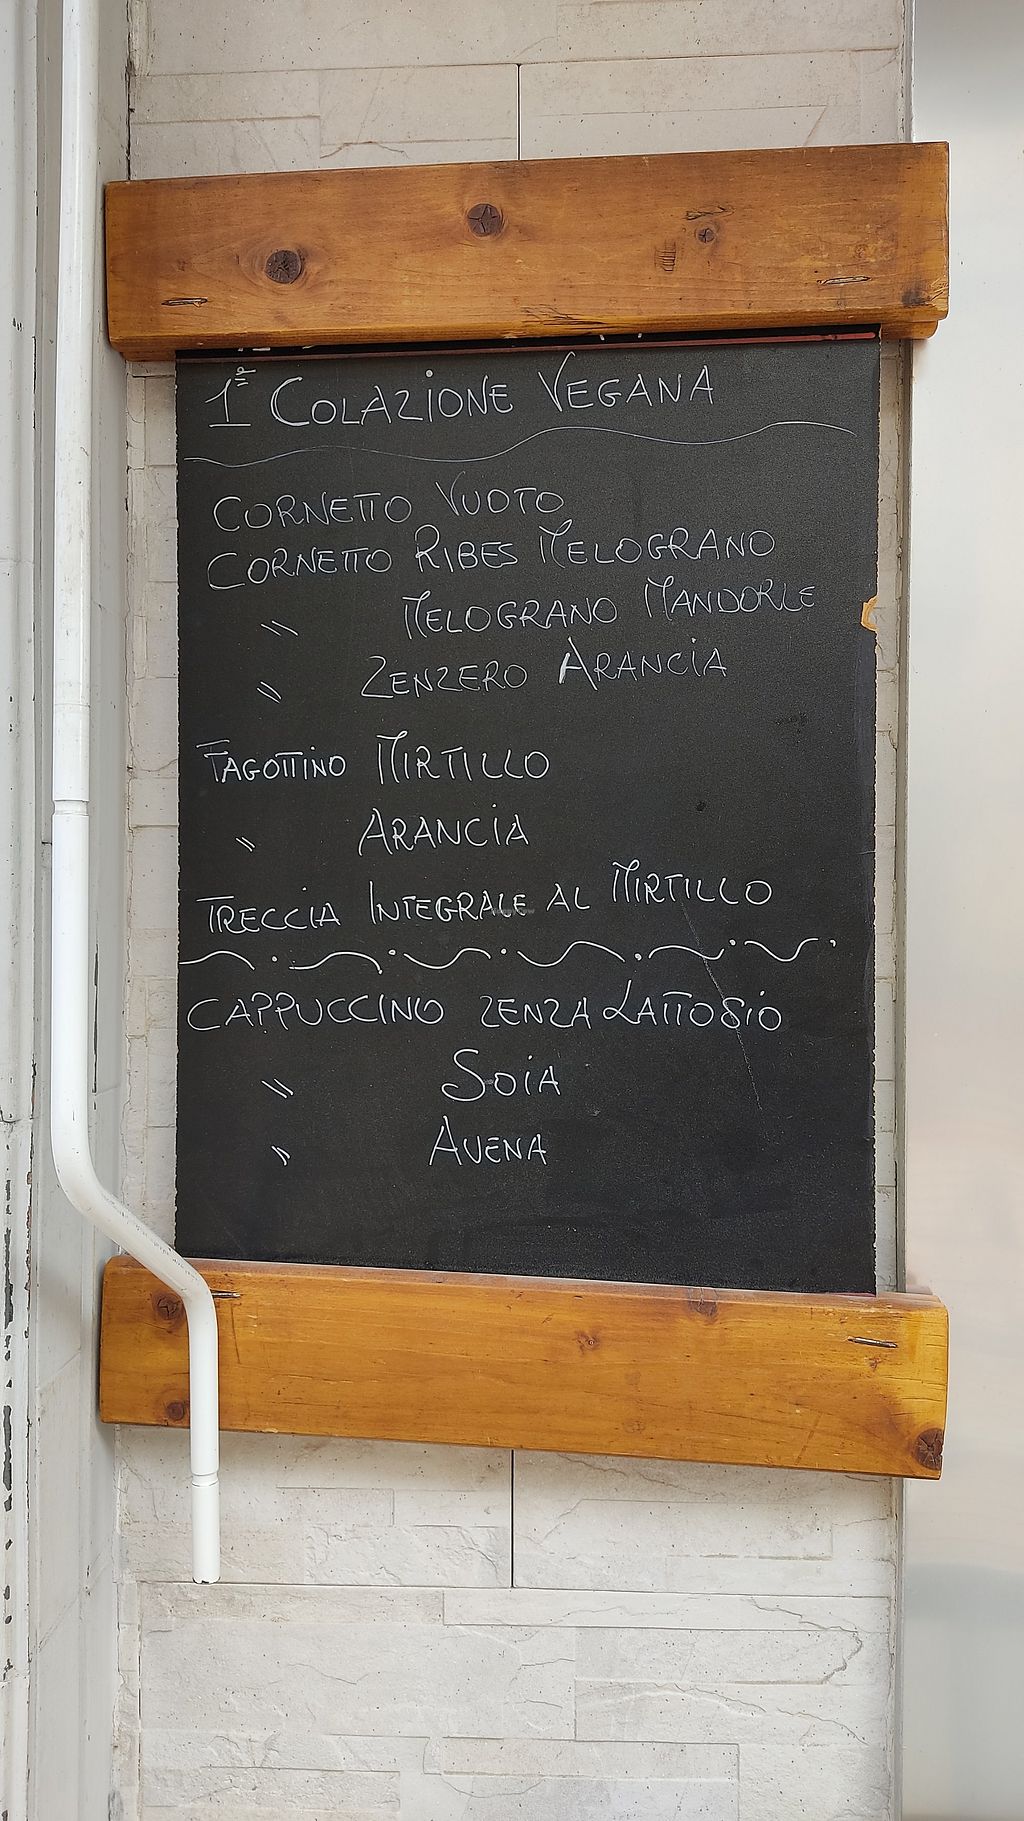 1ª COLAZIONE VEGANA
CORNETTO VUOTO
CORNETTO RIBES MELOGRANO
" MELOGRANO MANDORLE
" ZENZERO ARANCIA
FAGOTTINO MIRTILLO
" ARANCIA
TRECCIA INTEGRALE AL MIRTILLO
CAPPUCCINO ZENZA LATTOSIO
" SOIA
" AVENA